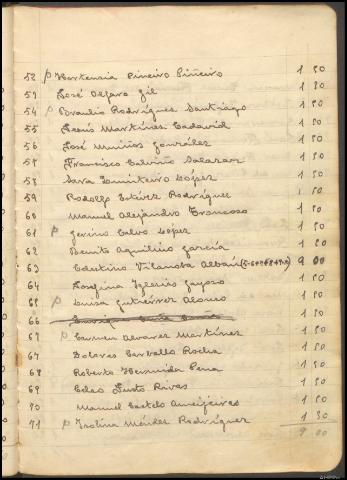 52 p Hortensia Pineiro Piñeiro 1 50
53 José Alfaro Gil 1 50
54 p Braulio Rodríguez Santiago 1 50
55 Martínez 1 50
56 José Muiños González 1 50
57 Francisco Calviño Salazar 1 50
58 Sara López 1 50
59 Rodolfo Estévez Rodríguez 1 50
60 Manuel Alejandro Troncoso 1 50
61 p Calvo López 1 50
62 Benito Aquilino García 1 50
63 Vilanova 9 00
64 Iglesias 1 50
65 p Luisa Gutiérrez Alonso 1 50
66
67 p Carmen Alvarez Martínez 1 50
67 Dolores Carballo Rocha 1 50
68 Roberto Hermida Pena 1 50
69 Justo Rivas 1 50
70 Manuel Castelo Ameijeiras 1 50
71 p Isolina Méndez Rodríguez 1 50
9 00